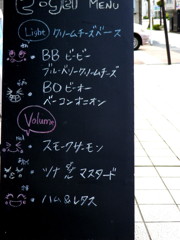 MENU
Light クリームチーズベース
BB ビービー
ブルーベリークリームチーズ
BO ビーオー
ベーコンオニオン
Volume
スモークサーモン
ツナ マスタード
ハム&レタス